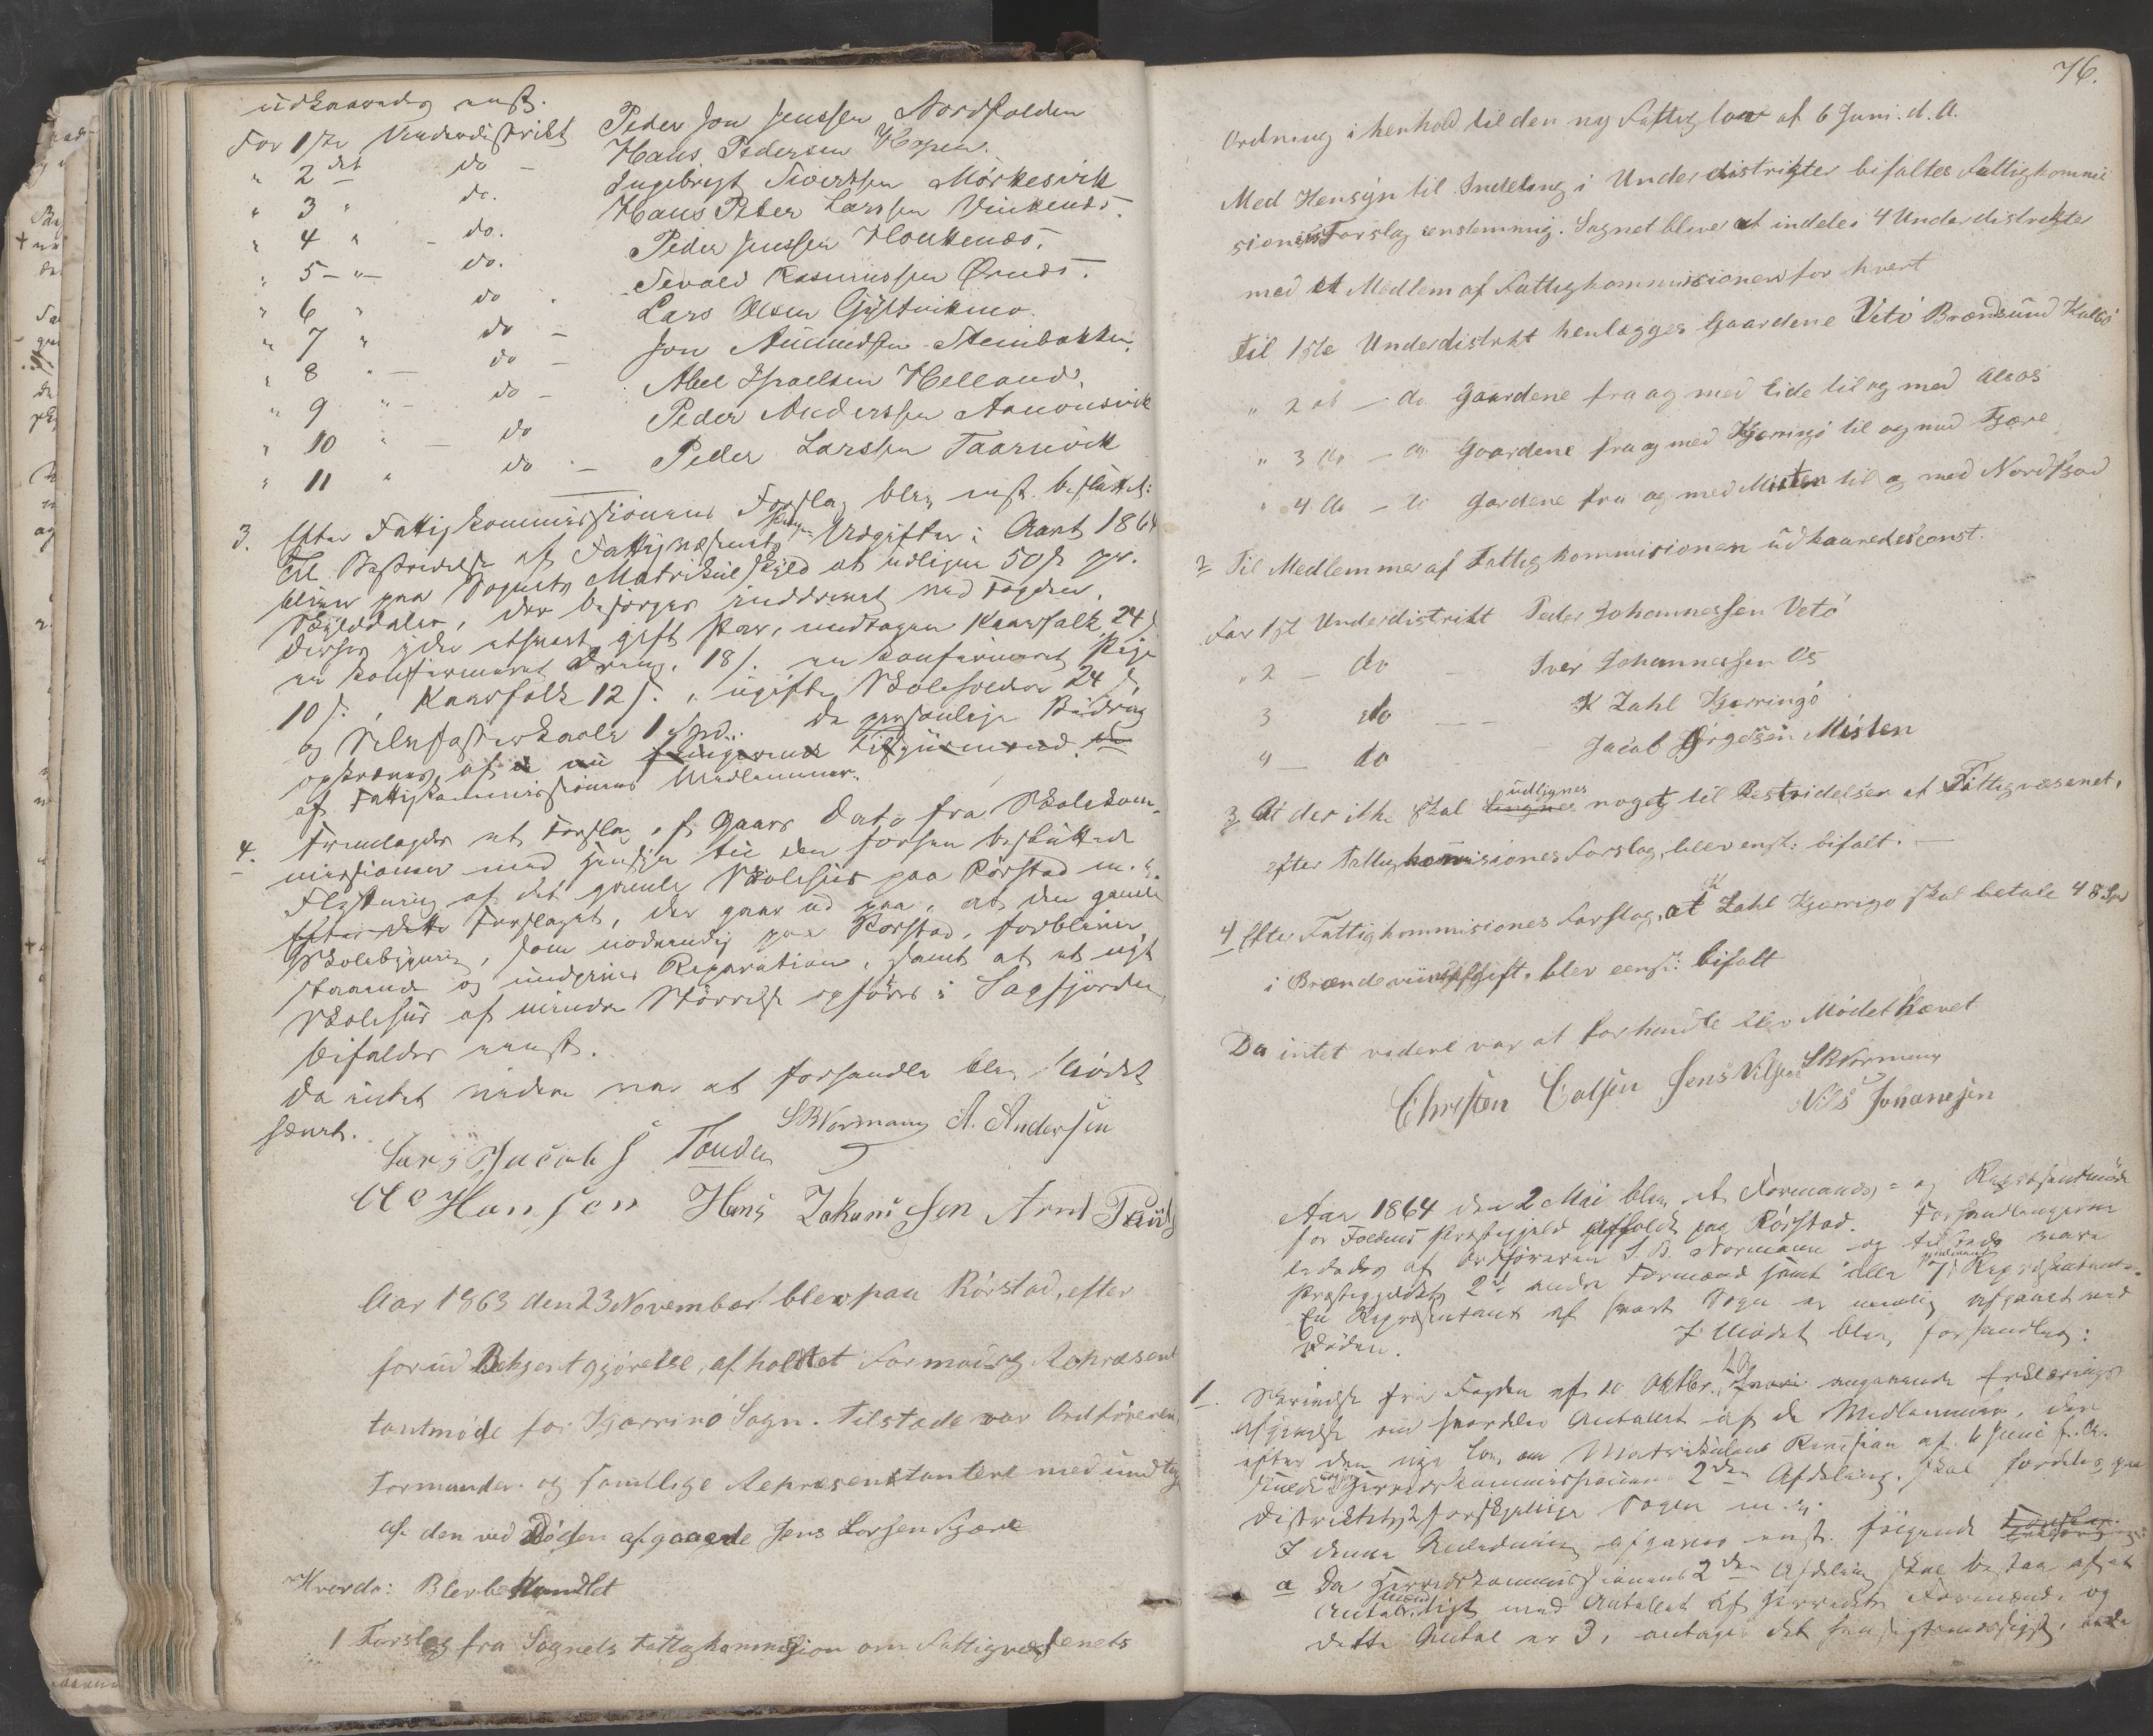 udkaaredes enst.
For 1ste Underdistrikt Peder Jon Jenssen Nordfolden
" 2det do - Hans Pedersen Kopen.
" 3 " do. Ingebrigt Sivertsen Mørkesvik
" 4 " - do. Hans Peter Larssen Vinkenæs.
" 5 - " - do. Peder Jenssen Houkenæs.
" 6 " do. Sevald Rasmussen Ørnæs.
" 7 " do - Lars Olsen Gyltvikmo.
" 8 " - do - Jon Amundsen Steinbakken.
" 9 " - do - Abel Israelsen Helland.
" 10 " - do Peder Anderssen Aanonsvik
" 11 " do - Peder Larssen Taarnvik
3. Efter Fattigkommissionens Forslag blev enst. besluttet:
Til Bestridelse af Fattigvæsenets Udgifter i Aaret 1864
bliver paa Sognets Matrikulskyld at udligne 50 s pr.
Skylddaler, der besørges inddrevet ved Fogden.
Dersom yder ethvert gift Par, undtagen Kaarfolk, 24 s
en konfirmeret Dreng, 18 s. en konfirmeret Pige
10 s., Kaarfolk 12 s. " ugifte Skoleholdere 24 s,
og Selvfosterkarle 1 Spd. De personlige Bidrag
opkræves af de nu fungerende Tilsynsmænd
af Fattigkommissionens Medlemmer.
4. Fremlagdes et Forslag af Gaars Dato fra Skolekom-
missionen med Hensyn til den forhen besluttede
Flytning af det gamle Skolehus paa Rørstad m. v.
Efter dette Forslaget, der gaar ud paa, at den gamle
Skolebygning, som nødvendig paa Rørstad, forbliver
staaende og undgives Reparation, samt at et nyt
Skolehus af mindre Størrelse opføres i Sagfjorden,
bifaldes enst.
Da intet videre var at forhandle blev Mødet
hævet.
S B Normann A. Andersen
Lars Jacob S Tender
Ole Hansen Hans Zakariassen Arnt
Aar 1863 den 23 November blev paa Rørstad, efter
forud Bekjentgjørelse, afholdtet Formand og Repræsen
tantmøde for Kjerringø Sogn. Tilstæde var Ordføreren
Formanden og samtlige Repræsentantere med undtag
af den ved Døden afgaaede Jens Larsen Fjære
Hvorda: Blev behandlet
1 Forslag fra Sognets Fattigkommission om Fattigvæsenets
76.
Ordning i henhold til den ny Fattiglov af 6 Juni. d. A.
Med Hensyn til Indeling i Underdistrikter bifaltes Fattigkommi
sionens Forslag enstemmig. Sognet bliver at indele i 4 Underdistrikter
med et Medlem af Fattigkommissionen for hvert
Til 1ste Underdistrikt henlægges Gaardene Vetø Brændsund Kalsø
" 2 ot - do Gaardene fra og med Lide til og med Alsos
" 3 do - do Gaardene fra og med Kjerringø til og med Fjære
" 4 do - do Gardene fra og med Misten til og med Nordfjord
2 Til Medlemmer af Fattigkommisionen udkaaredes enst.
For 1st Underdistrikt Peder Johannessen Vetø
" 2 - do - Iver Johannessen Os
3 do - - K Zahl Kjerringø
4 - do - Jacob Jørgesen Misten
3 At der ikke skal udlignes noget til Bestridelser af Fattigvæsenet,
efter Fattigkommisiones Forslag, blev enst: bifalt. -
4 Efter Fattigkommisiones Forslag, at K Zahl Kjerringø skal betale 48 Spd
i Brændeviinsafgift, blev eenst: bifalt
Da intet videre var at forhandle blev Mødet hævet
S B Normann
Christen Jens Nilsen
Nils Johanesen
Aar 1864 den 2 Mai blev et Formands= og Repræsentmøde
for Foldens Præstegjeld afholdt paa Rørstad. Forhandlingerne
lededes af Ordføreren S. B. Normann og tilstede vare
Præstegjeldets 2de andre Formænd samt alle 7 Repræsentanter.
En Repræsentant af hvert Sogn er nemlig afgaaet ved
Døden. I Mødet blev forhandlet:
1. Skrivelse fra Fogden af 10 Oktbr. angaaende Erklærings
Afgivelse om hvorledes Antallet af de Medlemmer, der
efter den nye Lov om Matrikulens Revision af 6 Juni f. A.
Herredskommissionens 2den Afdeling, skal fordeles paa
Distriktets 2 forskjellige Sogne m. v.
I denne Anledning afgaves enst. følgende
a Da Herredskommissionens 2den Afdeling skal bestaa af et
Antal Mænd ligt med Antallet af Herredets Formænd, og
dette Antal er 3, antages det hensigtsmæssigst, at de